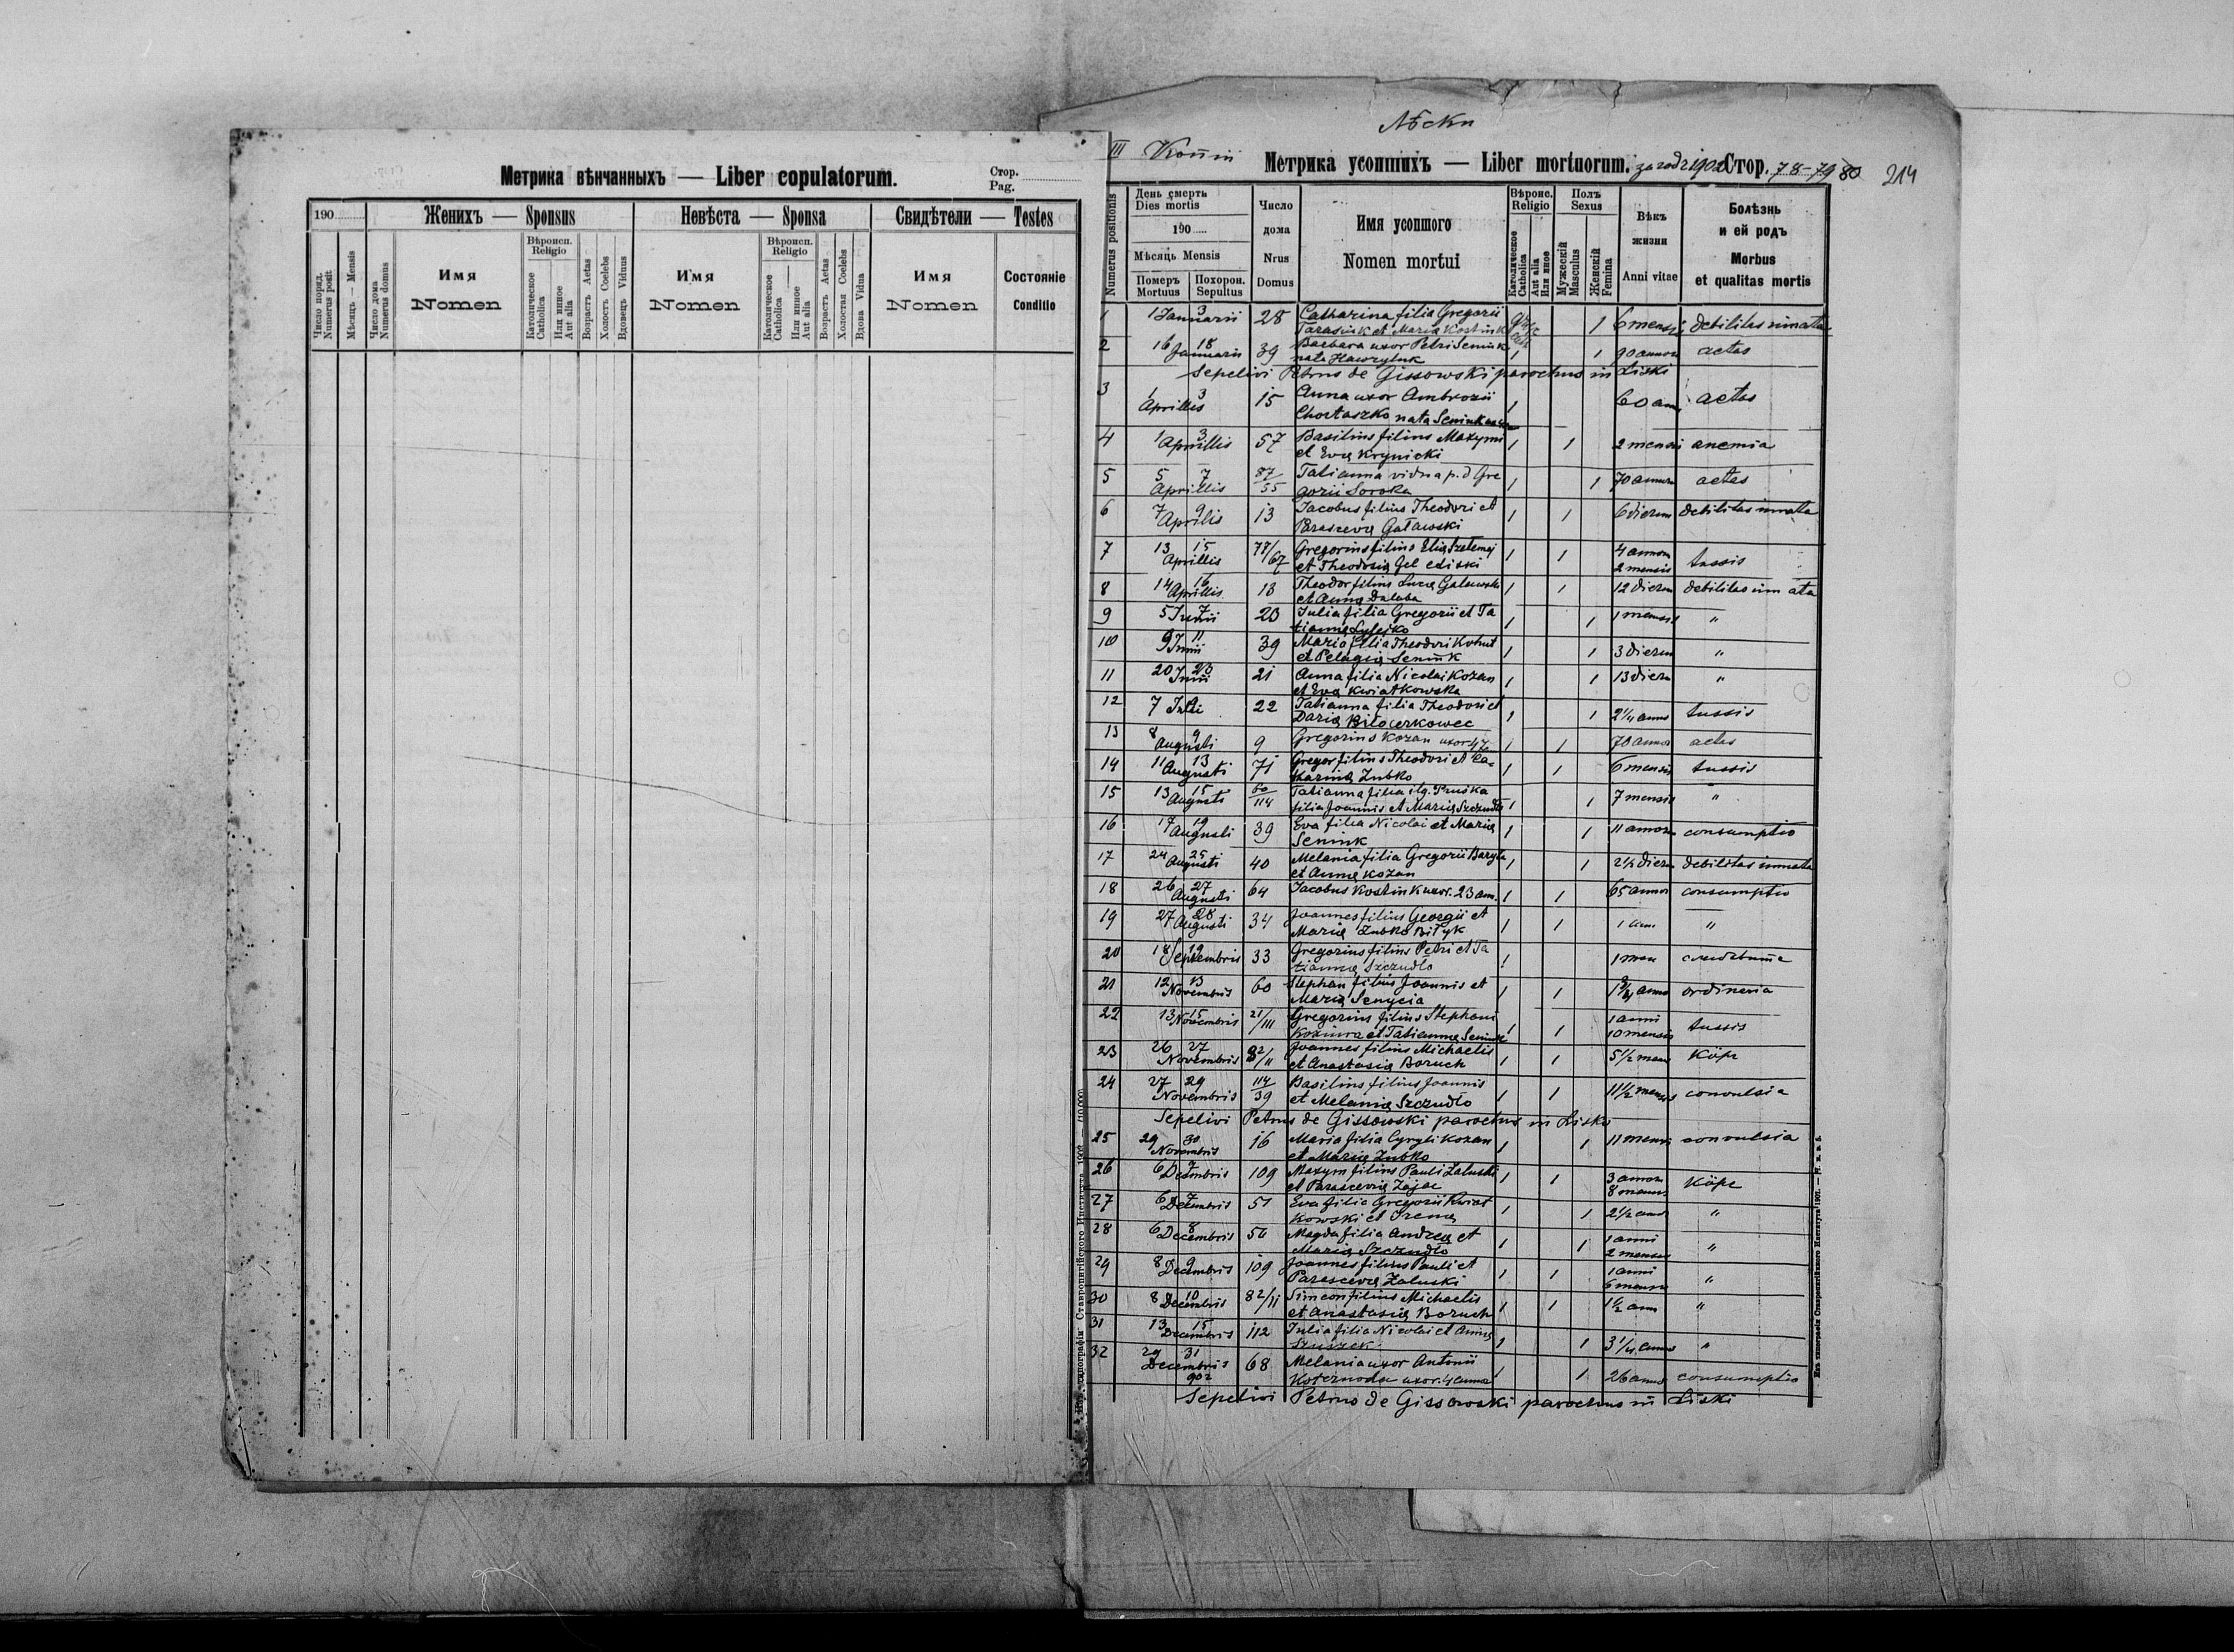 Метрика вѣнчанныхъ — Liber copulatorum.
Стор.
Pag.
190
Женихъ — Sponsus
Невѣста — Sponsa
Свидѣтели — Testes
Число поряд.
Numerus posit
Мѣсяць — Mensis
Число дома
Numerus domus
Имя
Nomen
Вѣроисп.
Religio
Католическое
Catholica
Или инное
Aut alia
Возрастъ Aetas
Холостъ Coelebs
Вдовець Viduus
Имя
Nomen
Вѣроисп.
Religio
Католическое
Catholica
Или инное
Aut alia
Возрастъ Aetas
Холостая Coelebs
Вдова Vidua
Имя
Nomen
Состояніе
Conditio
Лѣски
III Копіи
Метрика усопшихъ — Liber mortuorum. за годъ 1902 Стор. 78-79 80
214
Numerus positionis
День смерть
Dies mortis
190
Мѣсяць Mensis
Померъ
Mortuus
Похорон.
Sepultus
Число
дома
Nrus
Domus
Имя усопшого
Nomen mortui
Вѣроис.
Religio
Католическое
Catholica
Aut alia
Или иное
Полъ
Sexus
Мужескій
Masculus
Женскій
Femina
Вѣкъ
жизни
Anni vitae
Болѣзнь
и ей родъ
Morbus
et qualitas mortis
1 1 3 Januarii 28 Catharina filia Gregorii
Tarasiuk et Maria Kostiuk 1 6 mensis debilitas innata
2 16 18 Januarii 39 Barbara uxor Petri Seniuk
nata Hawryluk 1 1 90 annor actas
Sepelivi Petrus de Gissowski parochus in Liski
3 1 3 Aprillis 15 Anna uxor Ambrozii
Chortaszko nata Seniuk 1 60 ann actas
4 1 3 Aprillis 57 Basilius filius Maxymi
et Eva Krynicki 1 1 2 mensis anemia
5 5 7 Aprillis 87/55 Tatianna vidua p. d Gre
gorii Soroka 1 1 70 annor actas
6 7 9 Aprilis 13 Jacobus filius Theodori et
Parascevą Gałauski 1 1 6 dierum debilitas innata
7 13 15 Aprillis 77/67 Gregorius filius Elią
et Theodosią 1 1 4 annor
2 mensis tussis
8 14 16 Aprillis 13 Theodor filius Lucą Galauski
et Anną 1 1 12 dierum debilitas inn ata
9 5 7 Junii 23 Julia filia Gregorii et Ta
tianną 1 1 1 mensis "
10 9 11 Junii 39 Maria filia Theodori Kohut
et Pelagią Seniuk 1 1 3 dierum "
11 20 23 Junii 21 Anna filia Nicolai Kozan
et Evą Kwiatkowska 1 1 13 dierum "
12 7 Julii 22 Tatianna filia Theodori et
Darią Biłocerkowec 1 1 2 1/4 annor tussis
13 8 9 Augusti 9 Gregorius Kozan uxor. 1 1 70 annor actas
14 11 13 Augusti 71 Gregor filius Theodori et Ca-
tharinią Zubko 1 1 6 mensis tussis
15 13 15 Augusti 60/114 Tatianna filia
filia Joannis et Marią Szczudlo 1 1 7 mensis "
16 17 19 Augusti 39 Eva filia Nicolai et Marią
Seniuk 1 1 11 annor consumptio
17 24 25 Augusti 40 Melania filia Gregorii Baryla
et Anną Kozan 1 1 2 1/2 dierum debilitas innata
18 26 27 Augusti 64 Jacobus Kostiuk uxor. 23 ann. 1 1 65 annor consumptio
19 27 28 Augusti 34 Joannes filius Georgii et
Marią Zubko Biłyk 1 1 1 ann "
20 18 19 Septembris 33 Gregorius filius Petri et Ta
tianną Szczudło 1 1 men
21 12 13 Novembris 60 Stephan filius Joannis et
Marią Senycia 1 1 annor ordineria
22 13 15 Novembris 21/111 Gregorius filius Stephani
et Tatianną Seniuk 1 1 1 anni
10 mensis tussis
23 26 27 Novembris 82/11 Joannes filius Michaelis
et Anastasią Boruch 1 1 5 1/2 mens Köpe
24 27 29 Novembris 114/39 Basilius filius Joannis
et Melanią Szczudło 1 1 11 1/2 mensis convulsia
Sepelivi Petrus de Gissowski parochus in Liski
25 29 30 Novembris 16 Maria filia Cyryli Kozan
et Marią Zubko 1 1 11 mensis convulsia
26 6 7 Decembris 109 Maxym filius Pauli Załuski
et Parascevią Zajac 1 1 3 annor
8 mensis Köpe
27 6 7 Decembris 51 Eva filia Gregorii Kwiat
kowski et Irena 1 1 2 1/2 annor "
28 6 8 Decembris 56 Magda filia Andreą et
Marią Szczudło 1 1 1 anni
2 mensis "
29 8 9 Decembris 109 Joannes filius Pauli et
Parascevą Załuski 1 1 1 anni
6 mensis "
30 8 10 Decembris 82/11 Simeon filius Michaelis
et Anastasią Boruch 1 1 1 1/2 ann "
31 13 15 Decembris 112 Julia filia Nicolai et Anną
1 1 3 1/4 annor "
32 29 31 Decembris 902 68 Melania uxor Antonii
uxor. 4 annor 1 1 26 annor consumptio
Sepelivi Petrus de Gissowski parochus in Liski
Изъ типографіи Ставропигійского Института 1907.